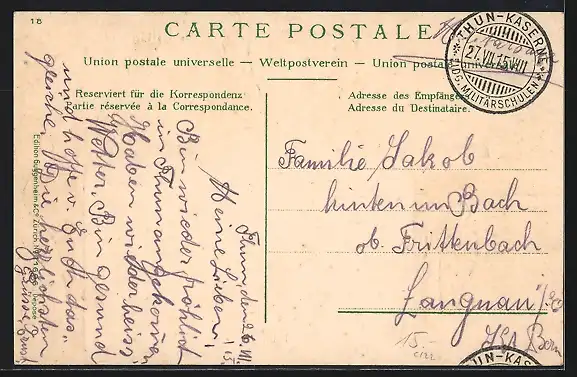 1B
CARTE POSTALE
Militärsache
Union postale universelle – Weltpostverein – Union postale universelle
THUN-KASERNE
27.VII.15.VIII
EIDG. MILITÄRSCHULEN
Reserviert für die Korrespondenz
Partie réservée à la Correspondance.
Adresse des Empfängers
Adresse du Destinataire.
Thun, den 26. VII. 15.
Meine Lieben!
Bin wieder fröhlich
in Thun angekommen,
Haben wieder heiss,
Wetter. Bin gesund
und hoffe v. Euch das-
gleiche. Die herzlichsten
Grüsse Ernst
Edition Guggenheim & Co., Zürich
Familie Jakob
hinten im Bach
ob. Frittenbach
Langnau i/E
Kt Bern
15.-
C122
THUN-KAS